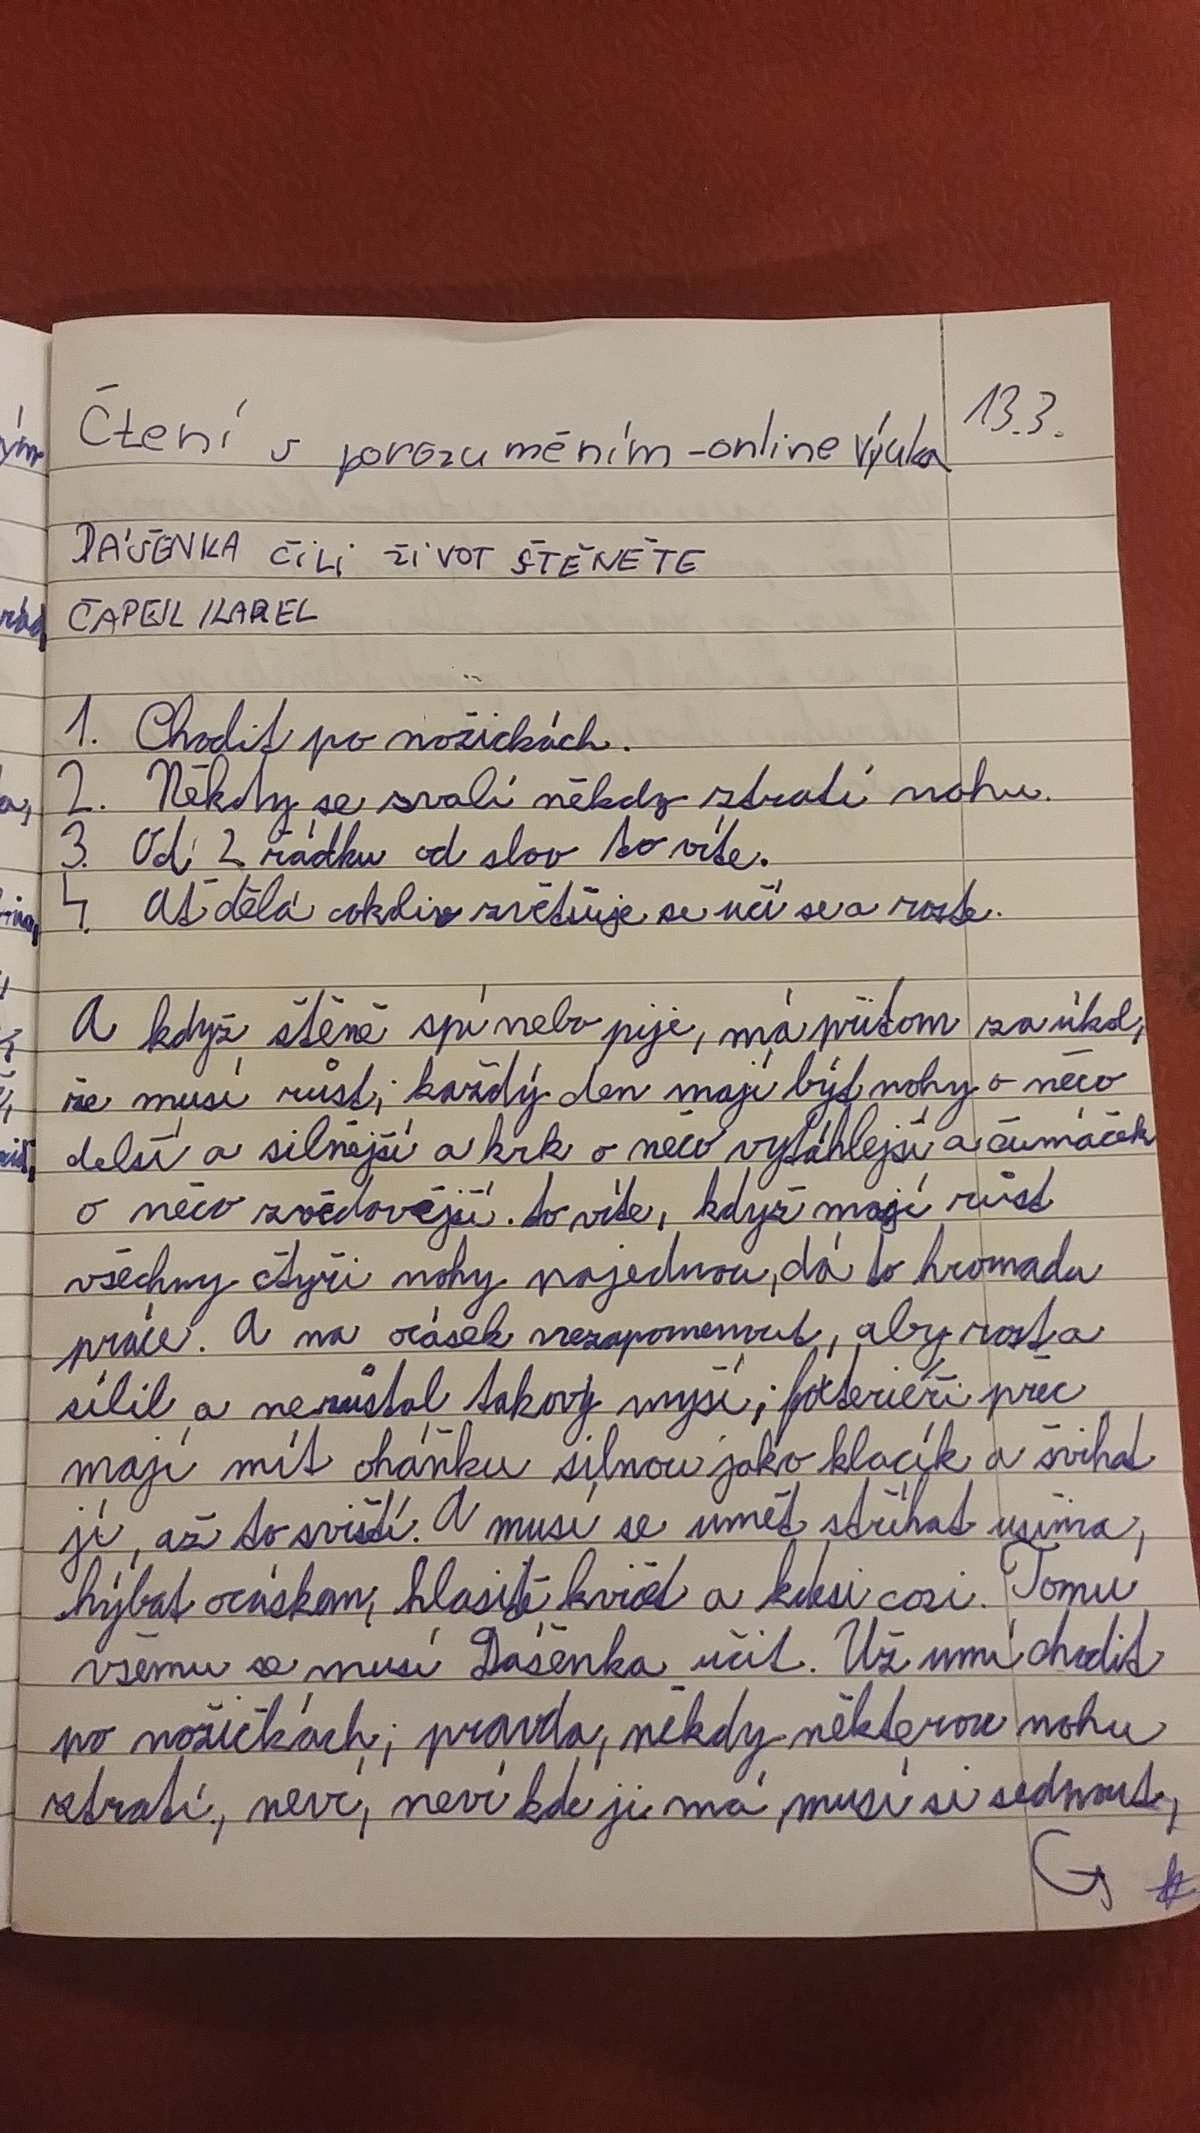 Čtení s porozuměním - online výuka 13.3.
DÁŠENKA ČILI ŽIVOT ŠTĚNĚTE
ČAPEK KAREL
1. Chodit po nožickách.
2. Někdy se svalí někdy ztratí nohu.
3. Od 2 řádku od slov to víte.
4. Ať dělá cokoliv zvětšuje se učí se a roste.
A když štěně spí nebo pije, má přitom za úkol,
že musí růst; každý den mají být nohy o něco
delší a silnější a krk o něco vytáhlejší a čumáček
o něco zvědovější. to víte, když mají růst
všechny čtyři nohy najednou, dá to hromadu
práce. A na ocásek nezapomenout, aby rost a
sílil a nerůstal takový myší; foxteriéři přec
mají mít oháňku silnou jako klacík a švihat
jí, až to sviští. A musí se umět stříhat ušima,
hýbat ocáskem, hlasitě kvičet a kdesi cosi. Tomu
všemu se musí Dášenka učit. Už umí chodit
po nožičkách; pravda, někdy některou nohu
ztratí, neví, neví kde ji má, musí si sednout,